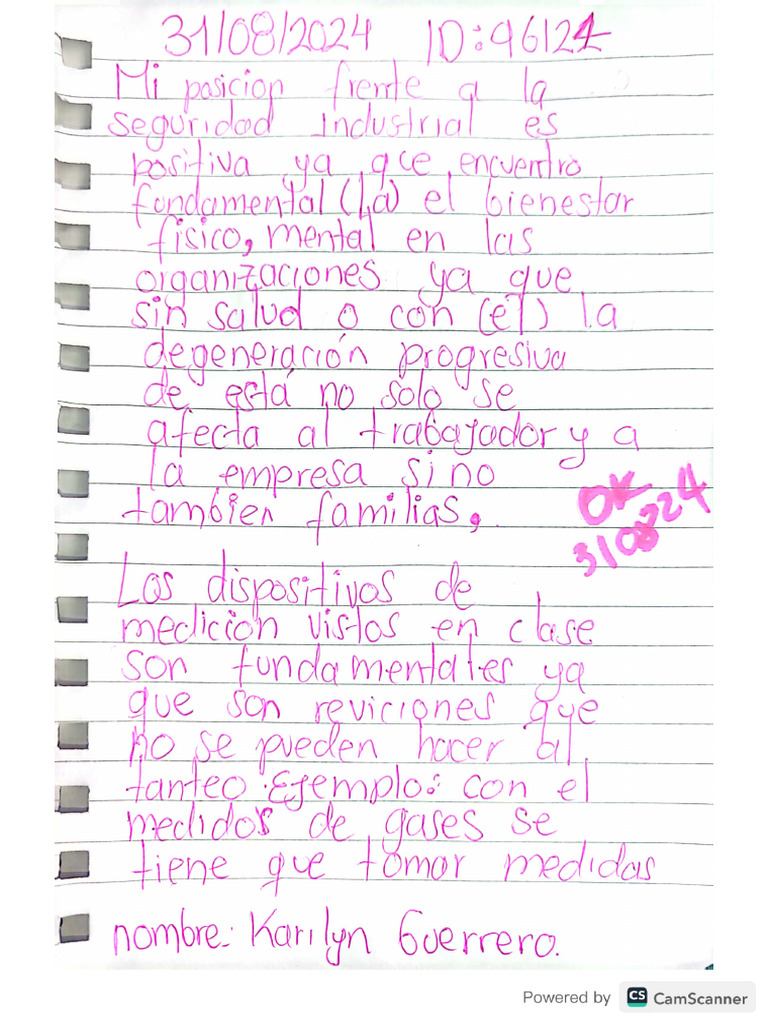 31/08/2024 ID:96121
Mi posicion frente a la
seguridad industrial es
positiva ya qce encuentro
fundamental (La) el bienestar
fisico, mental en las
organizaciones ya que
sin salud o con (el) la
degeneración progresiva
de está no solo se
afecta al trabajador y a
la empresa sino
tambien familias.
OK
310824
Los dispositivos de
medicion vistos en clase
son fundamentales ya
que son reviciones que
no se pueden hacer al
tanteo. Ejemplo: con el
medidos de gases se
tiene que tomar medidas
nombre: Karilyn Guerrero.
Powered by CS CamScanner